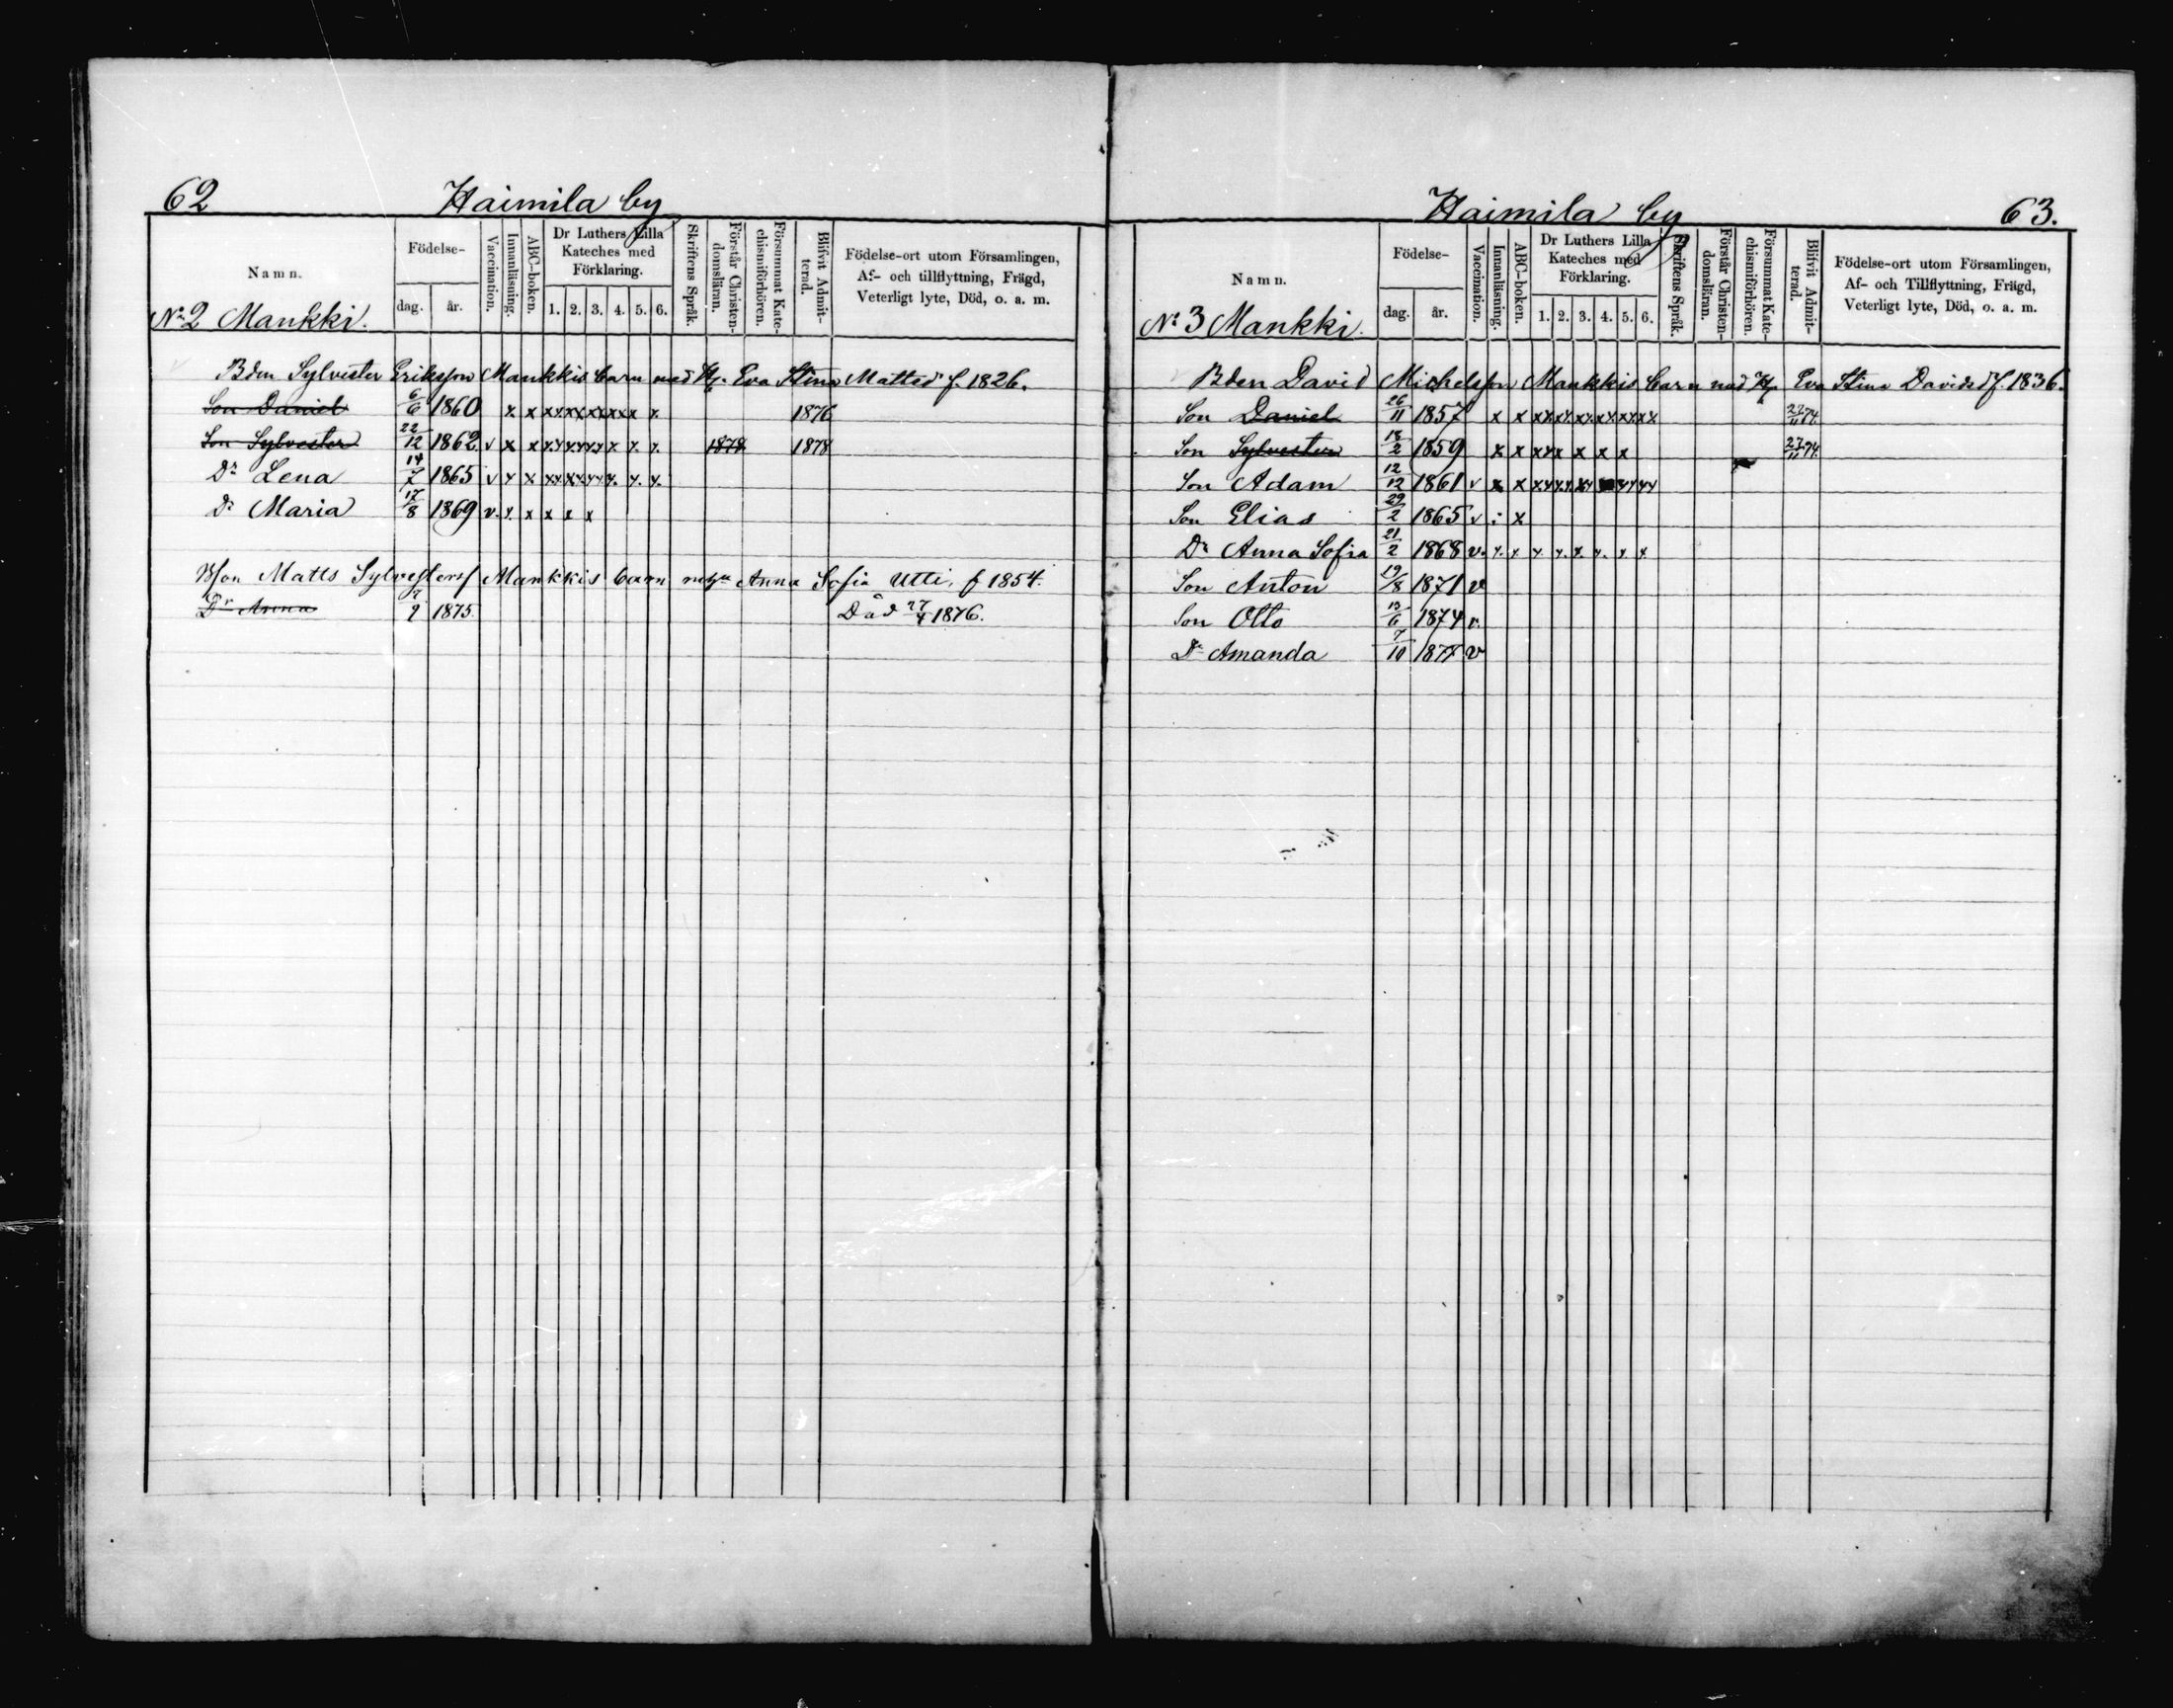 62 Haimila by
Namn. Födelse- dag. år. Vaccination. Innanläsning. ABC-boken. Dr Luthers Lilla Kateches med Förklaring. 1. 2. 3. 4. 5. 6. Skriftens Språk. Förstår Christen-domsläran. Försummat Kate-chismiförhören. Blifvit Admit-terad. Födelse-ort utom Församlingen, Af- och tillflyttning, Frägd, Veterligt lyte, Död, o. a. m.
No 2 Mankki.
Bden Sylvester Eriksson Mankkis barn med H. Eva Stina Mattsdr f. 1826.
Son Daniel 6/6 1860 x x x x x x x x x x x 1876
Son Sylvester 22/12 1862 v x x x x x x x x x x x 1878 1878
Dr Lena 14/7 1865 v x x x x x x x x x x x
Dr Maria 17/8 1869 v. x x x x x
Bson Matts Sylvesterss Mankkis barn m hu Anna Sofia Utti, f 1854.
Dr Anna 7/2 1875. Död 27/4 1876.
Haimila by 63.
Namn. Födelse- dag. år. Vaccination. Innanläsning. ABC-boken. Dr Luthers Lilla Kateches med Förklaring. 1. 2. 3. 4. 5. 6. Skriftens Språk. Förstår Christen-domsläran. Försummat Kate-chismiförhören. Blifvit Admit-terad. Födelse-ort utom Församlingen, Af- och Tillflyttning, Frägd, Veterligt lyte, Död, o. a. m.
No 3 Mankki.
Bden David Michelsson Mankkis barn med H. Eva Stina Davidsdr f. 1836.
Son Daniel 26/11 1857 x x x x x x x x x x x x 22/11 74.
Son Sylvester 18/2 1859 x x x x x x x x 22/11 74.
Son Adam 12/12 1861 v x x x x x x x x x x x x
Son Elias 29/2 1865 v : x
Dr Anna Sofia 21/2 1868 v. x. x x x. x. x. x x
Son Anton 19/8 1871 v
Son Otto 13/6 1874 v.
Dr Amanda 7/10 1877 v